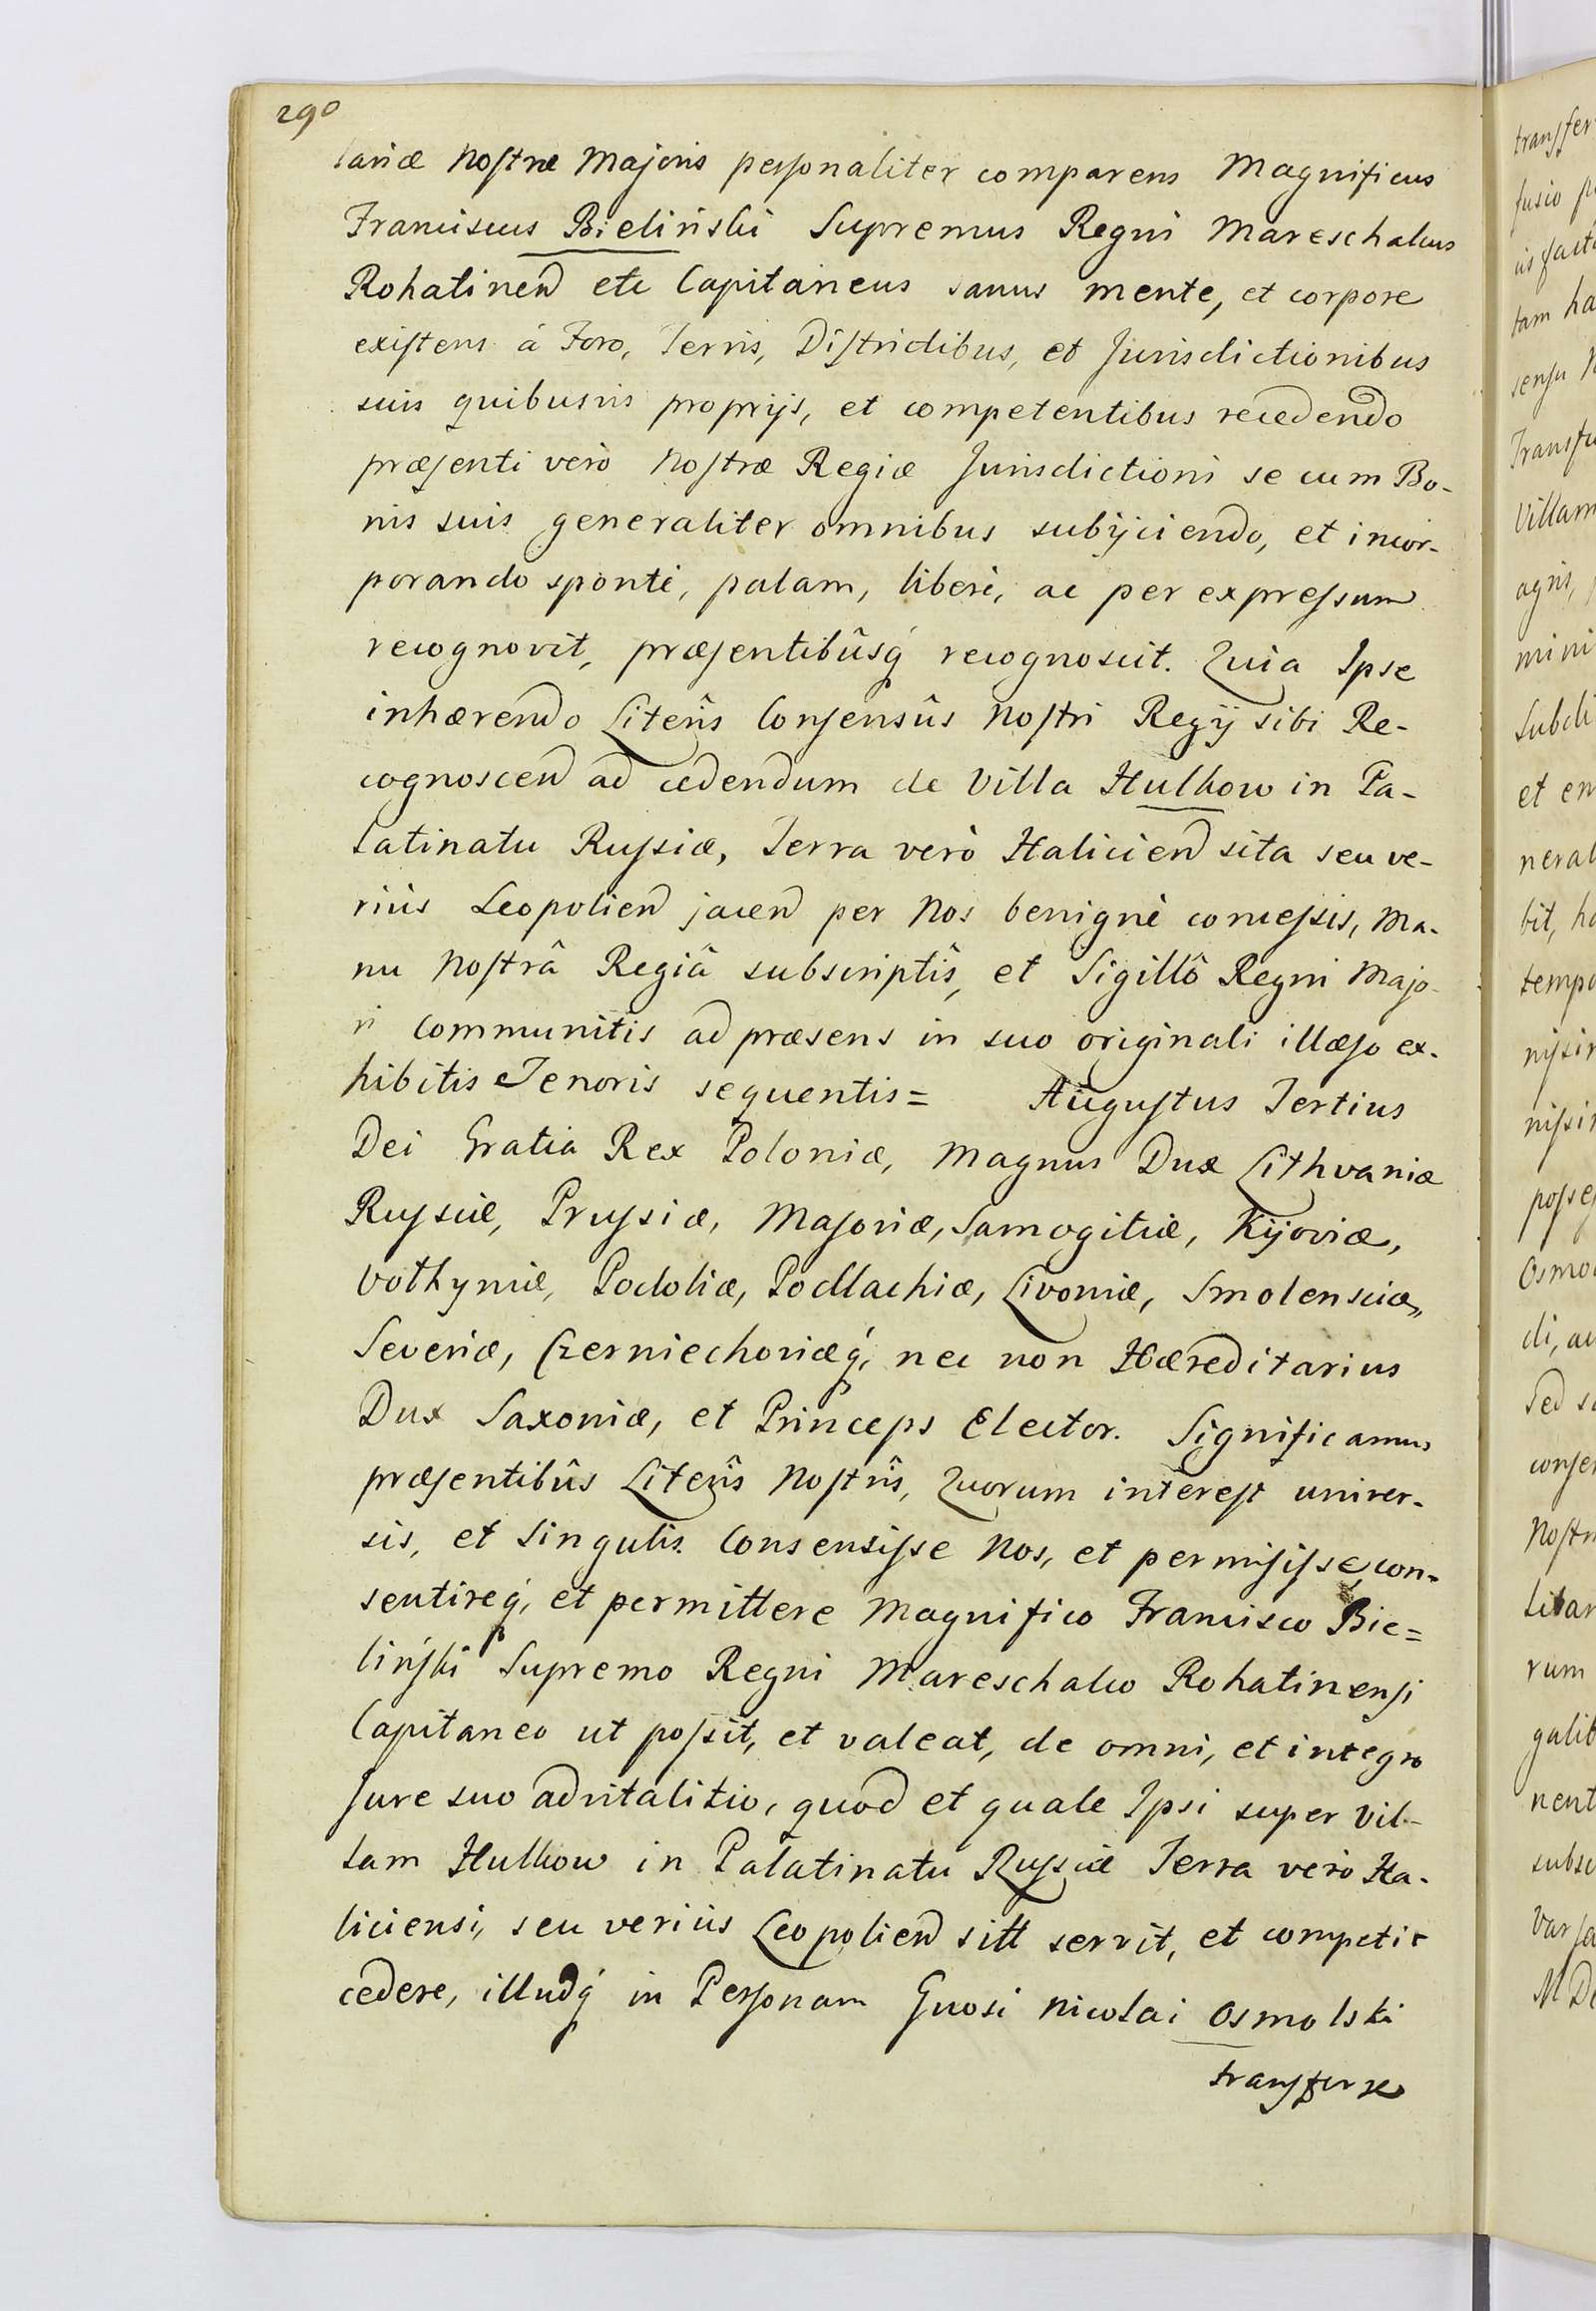 290
lariæ Noſtræ Majoris perſonaliter comparens Magnificus
Franciscus Bielinski Supremus Regni Mareschalcus
Rohatinen etc Capitaneus sanus mente, et corpore
exiſtens á Foro, Terris, Diſtrictibus, et Jurisdictionibus
suis quibusvis proprijs, et competentibus recedendo
præſenti verò Noſtræ Regiæ Jurisdictioni se cum Bo-
nis suis generaliter omnibus subijciendo, et incor-
porando spontè, palam, liberè, ac per expreſsum
recognovit, præſentibûsq́ recognoscit. Quia Ipse
inhærendo Literîs Conſensûs Noſtri Regij sibi Re-
cognoscen ad cedendum de Villa Hulkow in Pa-
latinatu Ruſsiæ, Terra verò Halicien sita seu ve-
riùs Leopolien jacen per Nos benignè conceſsis, Ma-
nu Noſtrâ Regiâ subscriptîs, et Sigillô Regni Majo-
ri Communitis ad præsens in suo originali illæſo ex-
hibitis Tenoris sequentis = Auguſtus Tertius
Dei Gratia Rex Poloniæ, Magnus Dux Lithvaniæ
Ruſsiæ, Pruſsiæ, Maſoviæ, Samogitiæ, Kijoviæ,
Volhyniæ, Podoliæ, Podlachiæ, Livoniæ, Smolensciæ,
Severiæ, Czerniechoviæq́, nec non Hæreditarius
Dux Saxoniæ, et Princeps Elector. Significamus
præſentibûs Literîs Noſtrîs, Quorum intereſt univer-
sis, et Singulis. Consensiſse Nos, et permiſiſse, con-
sentireq́, et permittere Magnifico Francisco Bie=
linſki Supremo Regni Mareschalco Rohatinenſi
Capitaneo ut poſsit, et valeat, de omni, et integro
Jure suo advitalitio, quod et quale Ipsi super Vil-
lam Hulkow in Palatinatu Ruſsiæ Terra verò Ha-
liciensi, seu veriùs Leopolien sitt servit, et competit
cedere, illudq́ in Perſonam Gnosi Nicolai Osmolski
tranſferre